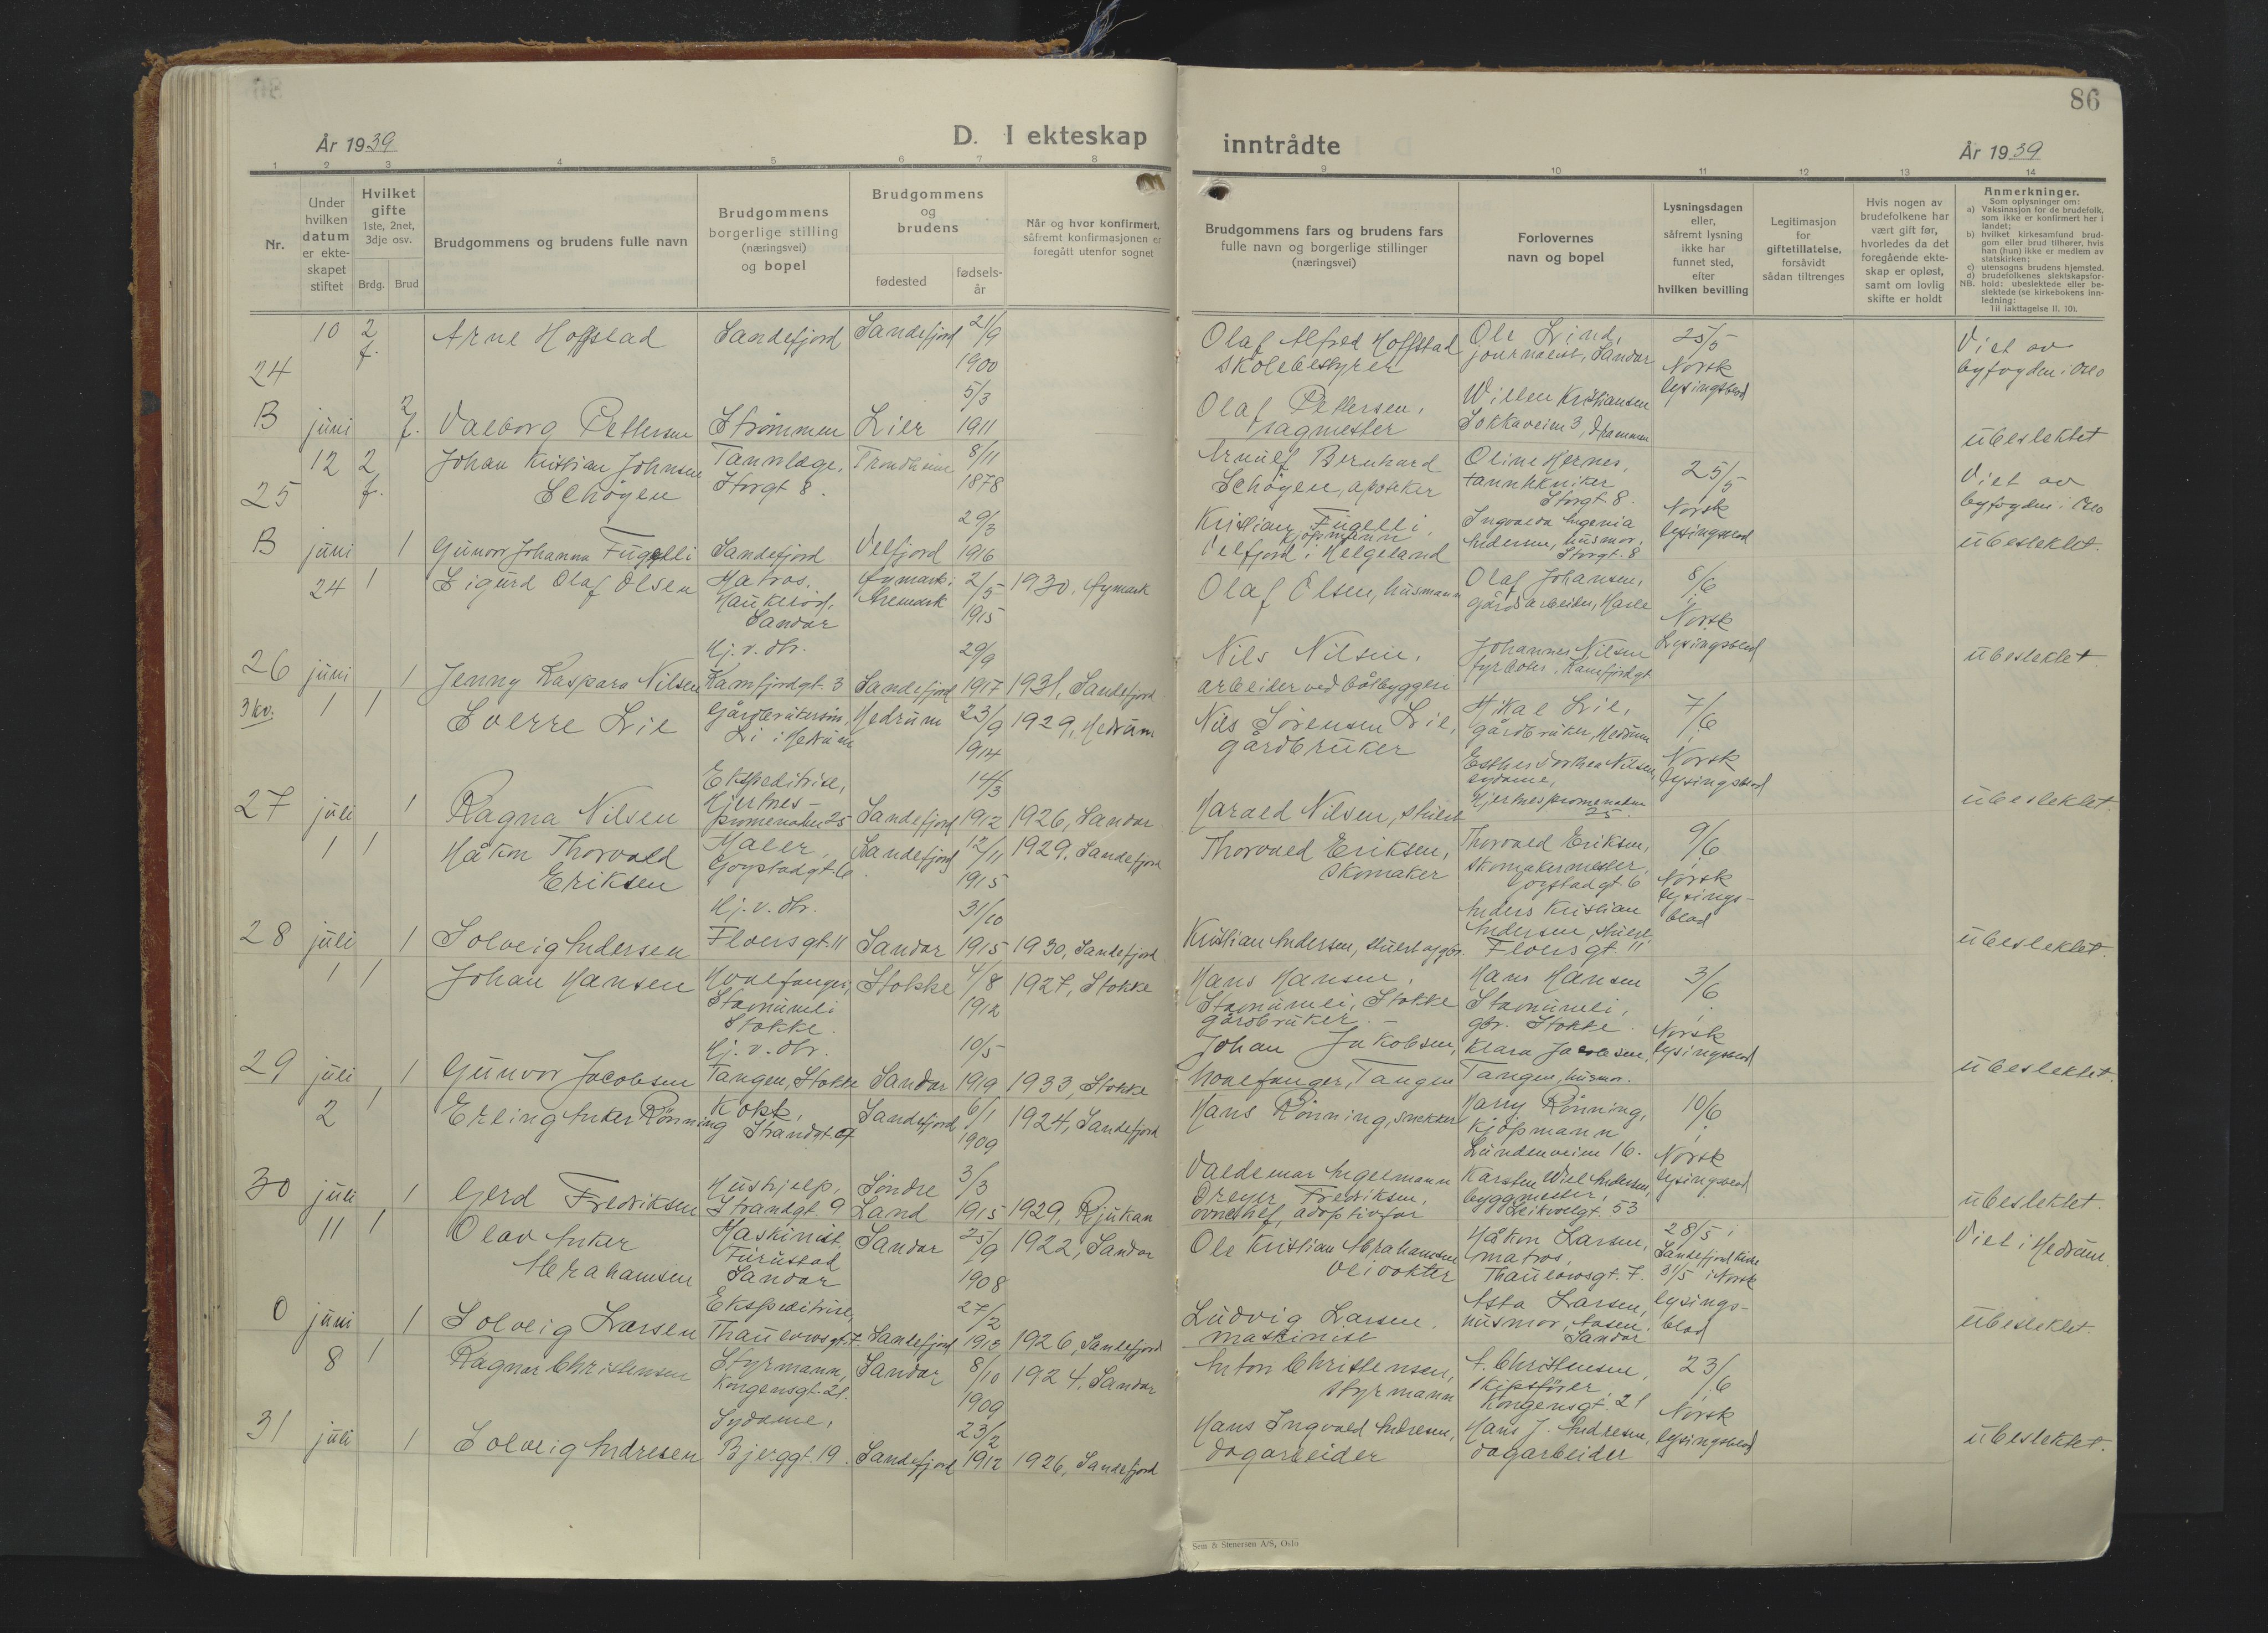 86
År 1939
D. I ekteskap
inntrådte
År 1939
1 2 3 4 5 6 7 8 9 10 11 12 13 14
Nr.
Under
hvilken
datum
er ekte-
skapet
stiftet
Hvilket
gifte
1ste, 2net,
3dje osv.
Brdg. Brud
Brudgommens og brudens fulle navn
Brudgommens
borgerlige stilling
(næringsvei)
og bopel
Brudgommens
og
brudens
fødested
fødsels-
år
Når og hvor konfirmert,
såfremt konfirmasjonen er
foregått utenfor sognet
Brudgommens fars og brudens fars
fulle navn og borgerlige stillinger
(næringsvei)
Forlovernes
navn og bopel
Lysningsdagen
eller,
såfremt lysning
ikke har
funnet sted,
efter
hvilken bevilling
Legitimasjon
for
giftetillatelse,
forsåvidt
sådan tiltrenges
Hvis nogen av
brudefolkene har
vært gift før,
hvorledes da det
foregående ekte-
skap er opløst,
samt om lovlig
skifte er holdt
Anmerkninger.
Som oplysninger om:
a) Vaksinasjon for de brudefolk,
som ikke er konfirmert her i
landet;
b) hvilket kirkesamfund brud-
gom eller brud tilhører, hvis
han (hun) ikke er medlem av
statskirken;
c) utensogns brudens hjemsted.
d) brudefolkenes slektskapsfor-
NB. hold: ubeslektede eller be-
slektede (se kirkebokens inn-
ledning:
Til iakttagelse II. 10).
24 B
10 juni
2 f.
Arne Hoffstad
Sandefjord
Sandefjord
21/9
1900
Olaf Alfred Hoffstad
skolebestyrer
Ole Lind,
journalist, Sandar
25/5
Norsk
lysingsblad
Viet av
byfogden i Oslo
2 f.
Valborg Pettersen
Strømmen
Lier
5/3
1911
Olaf Pettersen,
sagmester
Willem Kristiansen
Sokkaveien 3, Drammen
übeslektet
25 B
12 juni
2 f.
Johan Kristian Johnsen
Schøyen
Tannlæge,
Storgt 8.
Trondheim
8/11
1878
Arnulf Bernhard
Schøyen, apoteker
Oline Hernes,
tanntekniker
Storgt. 8.
25/5
Norsk
lysingsblad
Viet av
byfogden i Oslo
1
Gunvor Johanna Fugelli
Sandefjord
Velfjord
29/3
1916
Kristian Fugelli,
kjøpmann
Velfjord i Helgeland
Ingvalda Ingenia
Andersen, husmor,
Storgt. 8
übeslektet.
26
24 juni
1
Sigurd Olaf Olsen
Matros,
Haukerød,
Sandar
Øymark i
Aremark
2/5
1915
1930, Øymark
Olaf Olsen, husmann
Olaf Johansen,
gårdsarbeider, Hasle
8/6
i
Norsk
Lysingsblad
1
Jenny Kaspara Nilsen
Hj. v. dtr.
Kamfjordgt. 3
Sandefjord
29/9
1917
1931, Sandefjord
Nils Nilsen,
arbeider ved båtbyggeri
Johannes Nilsen
fyrbøter, Kamfjordgt
übeslektet.
3 kv.
27
1 juli
1
Sverre Lie
Gårdbrukersøn,
Li i Hedrum
Hedrum
23/9
1914
1929, Hedrum
Nils Sørensen Lie,
gårdbruker
Mikal Lie,
gårdbruker, Hedrum
7/6
i
Norsk
lysingsblad
1
Ragna Nilsen
Ekspeditrise,
Hjertnes-
promenaden 25
Sandefjord
14/3
1912
1926, Sandar
Harald Nilsen, stuert
Esther Dorthea Nilsen
sydame,
Hjertnespromenaden
25.
übeslektet.
28
1 juli
1
Håkon Thorvald
Eriksen
Maler,
Gogstadgt. 6
Sandefjord
12/11
1915
1929, Sandefjord
Thorvald Eriksen,
skomaker
Thorvald Eriksen,
skomakermester,
Gogstadgt. 6
9/6
i
Norsk
lysings-
blad
1
Solveig Andersen
Hj. v. dtr.
Floersgt. 11
Sandar
31/10
1915
1930, Sandefjord
Kristian Andersen, stuert
Anders Kristian
Andersen, stuert,
Floersgt. 11
übeslektet.
29
1 juli
1
Johan Hansen
Hvalfanger,
Stavnumli
Stokke.
Stokke
4/8
1912
1927, Stokke
Hans Hansen,
Stavnumli, Stokke
gårdbruker.
Hans Hansen
Stavnumli,
gbr. Stokke.
3/6
i
Norsk
lysingsblad
1
Gunvor Jacobsen
Hj. v. dtr.
Tangen, Stokke
Sandar
10/5
1919
1933, Stokke
Johan Jakobsen,
hvalfanger, Tangen
Klara Jacobsen,
Tangen, husmor.
übeslektet.
30
2 juli
1
Erling Anker Rønning
Kokk,
Strandgt. 9
Sandefjord
6/1
1909
1924, Sandefjord
Hans Rønning, snekker
Harry Rønning,
kjøpmann
Lundenveien 16.
10/6
i
Norsk
lysingsblad
1
Gerd Fredriksen
Hushjelp,
Strandgt. 9
Søndre
Land
3/3
1915
1929, Rjukan
Valdemar Angelmann
Dreyer Fredriksen,
adoptivfar
Karsten Wiel Andersen,
byggmester,
Leikvollgt. 53
übeslektet.
0
11 juni
1
Olav Anker
Abrahamsen
Maskinist
Furustad
Sandar
Sandar
25/9
1908
1922, Sandar
Ole Kristian Abrahamsen
Håkon Larsen,
matros,
Thaulowsgt. 7.
28/5 i
Sandefjord kirke
31/5 i Norsk
lysings-
blad
Viet i Hedrum.
1
Solveig Larsen
Ekspeditrise,
Thaulowsgt. 7.
Sandefjord
27/2
1913
1926, Sandefjord
Ludvig Larsen,
maskinist
Asta Larsen,
husmor, Aasen,
Sandar
übeslektet.
31
8 juli
1
Ragnar Christensen
Styrmann,
Kongensgt. 21.
Sandar
8/10
1909
1924, Sandar
Anton Christensen,
styrmann
A. Christensen,
skipsfører,
Kongensgt. 21
23/6
i
Norsk
lysingsblad
1
Solveig Andresen
Sydame,
Bjerggt. 19.
Sandefjord
23/2
1912
1926, Sandefjord
Hans Ingvald Andresen,
dagarbeider
Hans J. Andresen,
dagarbeider
übeslektet.
Sem & Stenersen A/S, Oslo